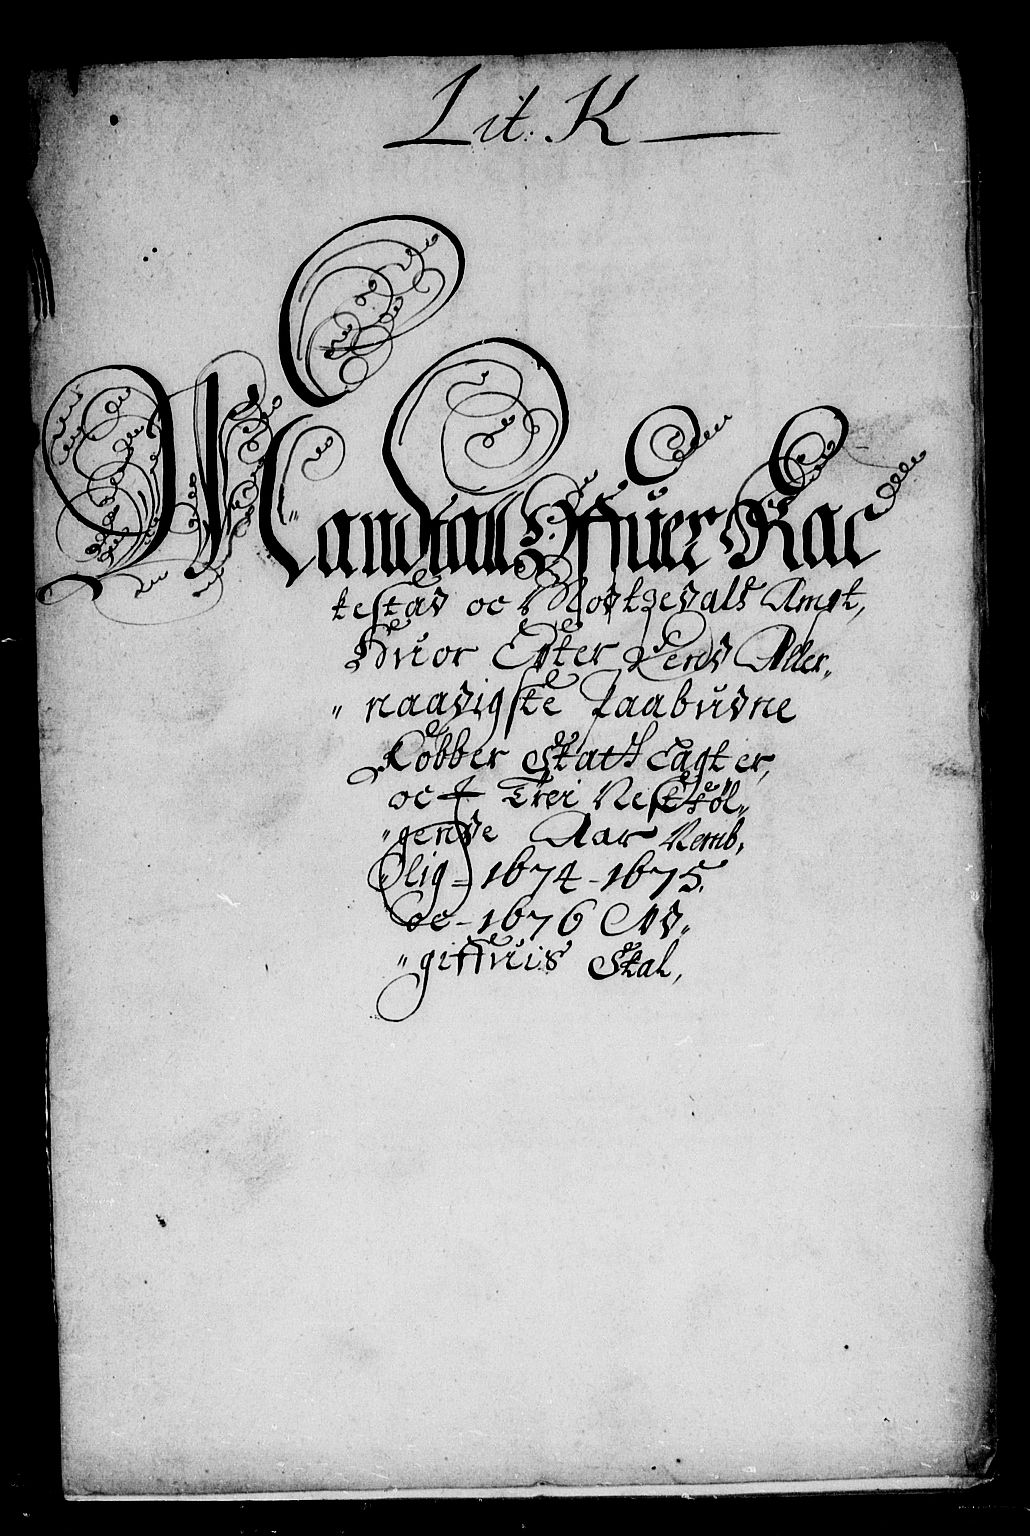 Lit. K
Mandtall Offuer Rac
kestad oc Nordzedals Ampt,
Huor Epter dend Aller„
„naadigste Paabudne
Kobber Skatt Eagter,
oc I Trei Nest föl„
„gende Aar Nemb„
„lig - 1674 - 1675.
oc - 1676 Vd„
„giffuis Skal,